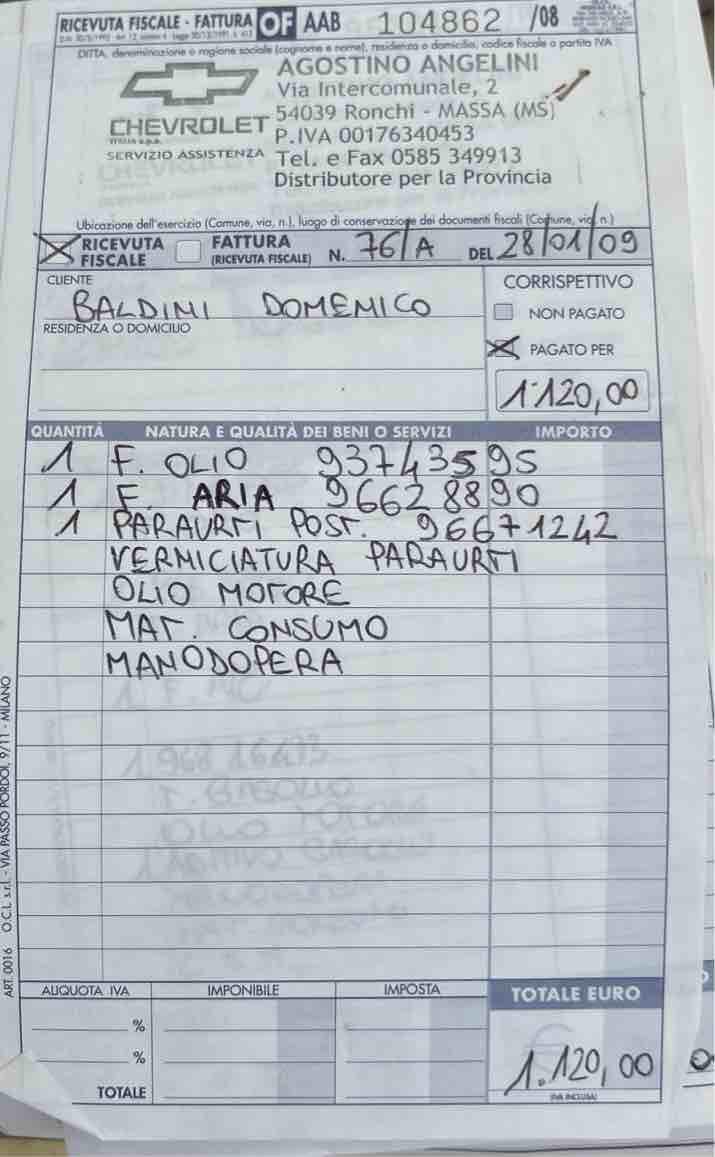 RICEVUTA FISCALE - FATTURA OF AAB 104862 /08
DITTA, denominazione o ragione sociale (cognome e nome), residenza o domicilio, codice fiscale o partita IVA
AGOSTINO ANGELINI
Via Intercomunale, 2
54039 Ronchi - MASSA (MS)
CHEVROLET
P.IVA 00176340453
ITALIA s.p.a.
SERVIZIO ASSISTENZA
Tel. e Fax 0585 349913
Distributore per la Provincia
Ubicazione dell'esercizio (Comune, via, n.), luogo di conservazione dei documenti fiscali (Comune, via, n.)
RICEVUTA FISCALE
FATTURA (RICEVUTA FISCALE) N. 76/A DEL 28/01/09
CLIENTE
CORRISPETTIVO
BALDINI DOMENICO
NON PAGATO
RESIDENZA O DOMICILIO
PAGATO PER
1.120,00
QUANTITÀ NATURA E QUALITÀ DEI BENI O SERVIZI IMPORTO
1 F. OLIO 93743595
1 F. ARIA 96628890
1 PARAURTI POST. 96671242
VERNICIATURA PARAURTI
OLIO MOTORE
MAT. CONSUMO
MANODOPERA
ART. 0016 O.C.L. s.r.l. - VIA PASSO PORDOI, 9/11 - MILANO
ALIQUOTA IVA IMPONIBILE IMPOSTA TOTALE EURO
%
%
1.120,00
TOTALE
(IVA INCLUSA)